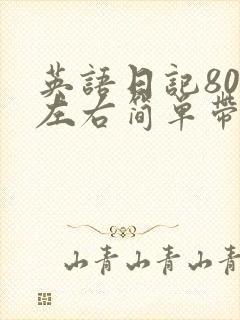 英語日記80
左右简单帶
山青山青山青